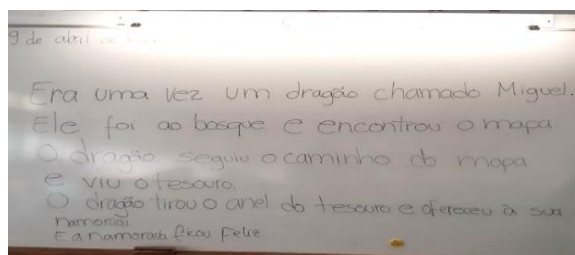 9 de abril de
Era uma vez um dragão chamado Miguel.
Ele foi ao bosque e encontrou o mapa
O dragão seguiu o caminho do mapa
e viu o tesouro.
O dragão tirou o anel do tesouro e ofereceu à sua
namorada
E a namorada ficou feliz.